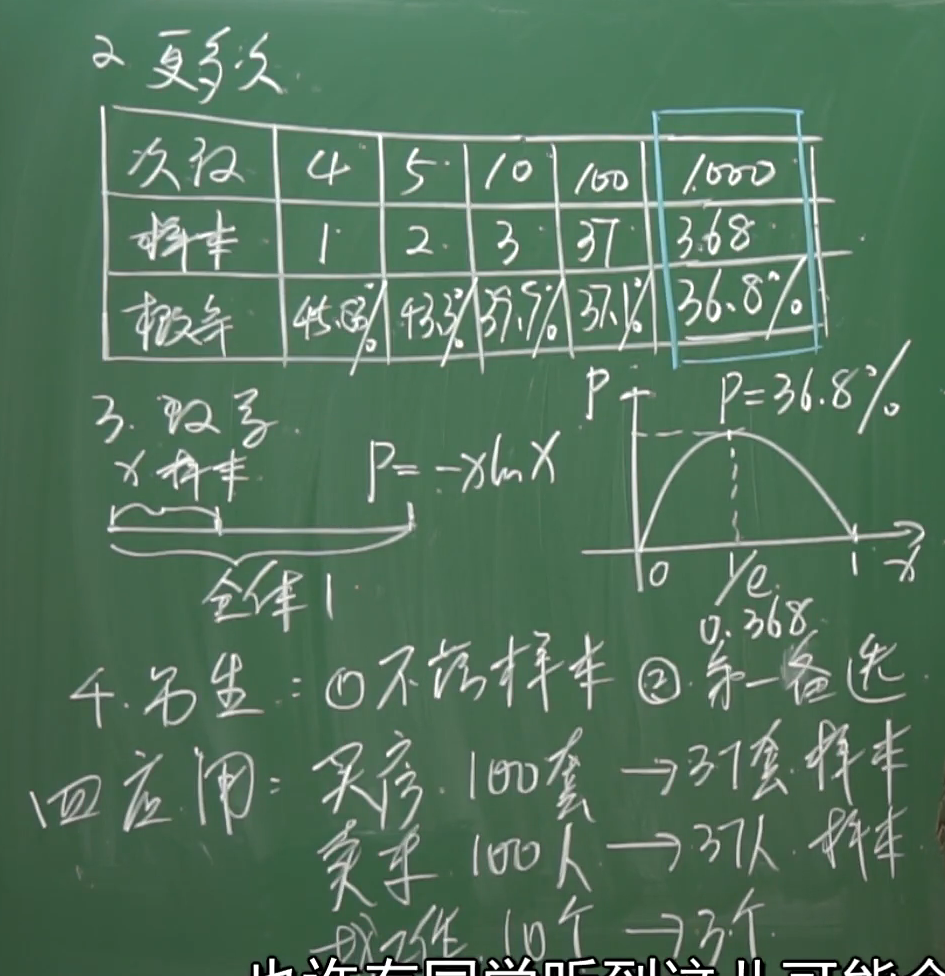 2. 更多次.
次数 4 5 10 100 1000
样本 1 2 3 37 368
概率 45.8% 43.3% 39.9% 37.1% 36.8%
3. 数学.
x 样本 P=-xlnX
全体 1
P P=36.8%
0 1/e 1 x
0.368
4. 男生: ①不落样本 ②.第一备选.
四 应用: 买房. 100套 →37套.样本
卖车 100人 →37人.样本
找工作 10个 →3个
也许有同学听到这儿可能会